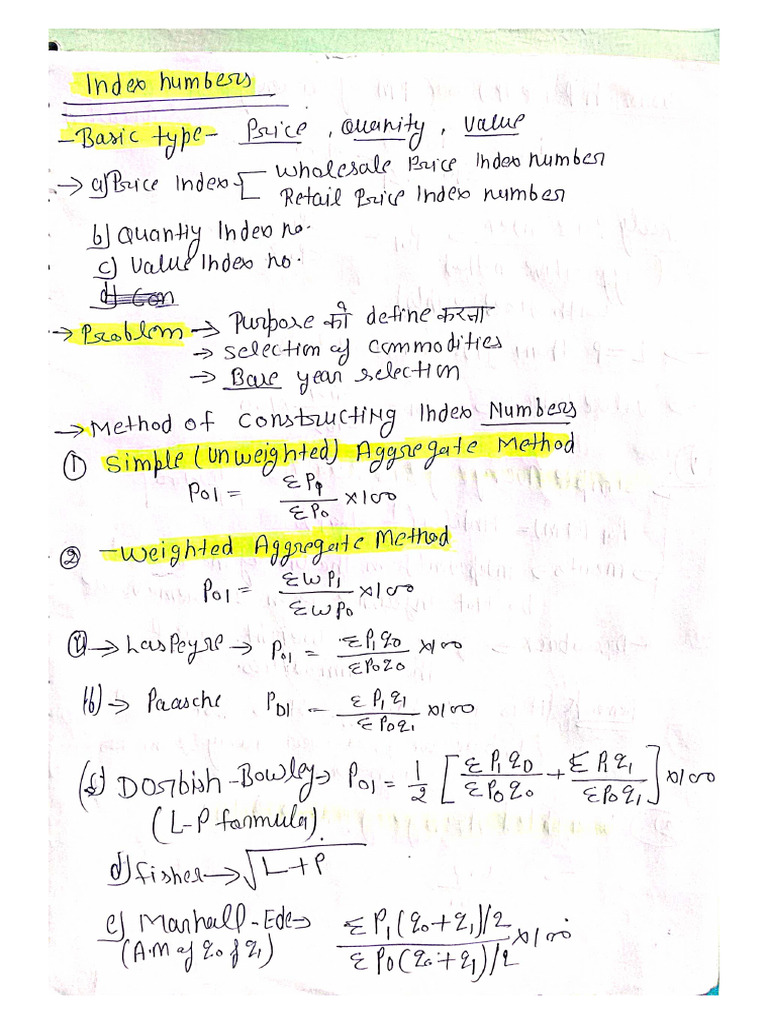 Index numbers
- Basic type - Price, Quanity, Value
→ a) Price Index { Wholesale Price Index number
Retail Price Index number
b) Quantiy Index no.
c) Value Index no.
d) Con
→ Problem → Purpose को define करना
→ Selection of commodities
→ Base year selection
→ Method of Constructing Index Numbers
① Simple (unweighted) Aggregate Method
P01 = ΣP1/ΣP0 ×100
② - Weighted Aggregate Method
P01 = ΣWP1/ΣWP0 ×100
→ Laspeyre → P01 = ΣP1q0/ΣP0q0 ×100
(b) → Paasche P01 = ΣP1q1/ΣP0q1 ×100
Dorbish-Bowley → P01 = 1/2 [ΣP1q0/ΣP0q0 + ΣP1q1/ΣP0q1] ×100
(L-P formula).
d) fisher → √L+P
e) Marhall-Ede → ΣP1(q0+q1)/2 / ΣP0(q0+q1)/2 ×100
(A.M of q0 of q1)